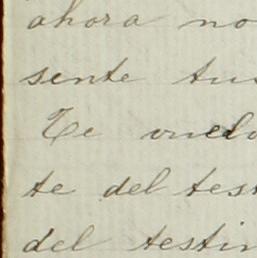 ahora no
sente tus
Te vuelv
te del test
del testim